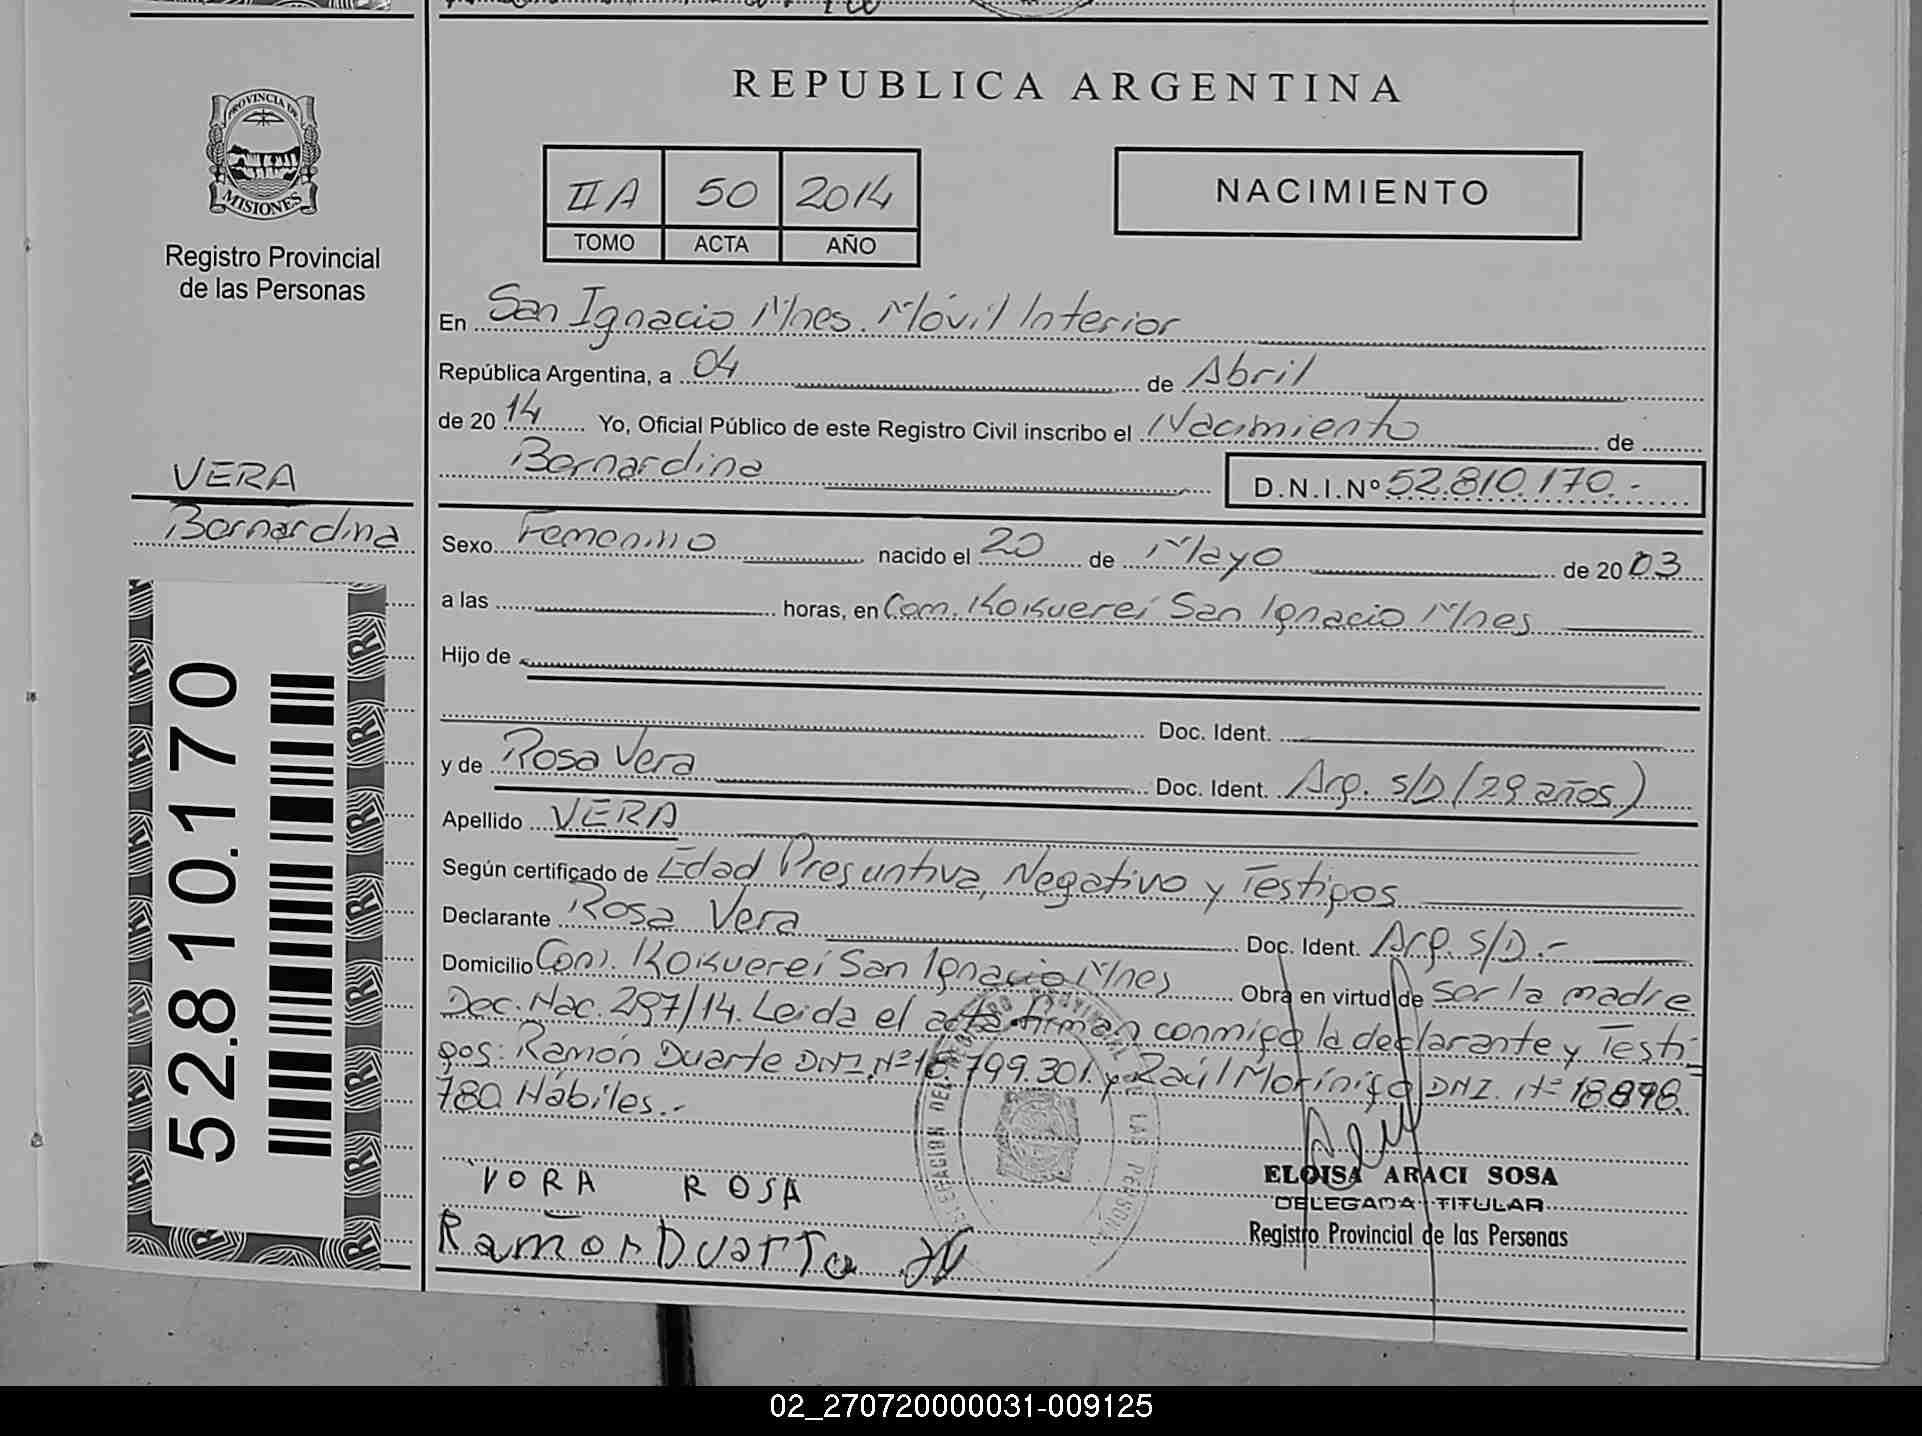 REPUBLICA ARGENTINA
PROVINCIA DE
MISIONES
Registro Provincial
de las Personas
IIA 50 2014
TOMO ACTA AÑO
NACIMIENTO
En San Ignacio Mnes. Móvil Interior
República Argentina, a 04 de Abril
de 2014 Yo, Oficial Público de este Registro Civil inscribo el Nacimiento de
Bernardina D.N.I.Nº 52.810.170.-
VERA
Bernardina
52.810.170
Sexo Femenino nacido el 20 de Mayo de 2003
a las horas, en Com. Kokuereí San Ignacio Mnes
Hijo de
Doc. Ident.
y de Rosa Vera Doc. Ident. Arg. s/D (29 años)
Apellido VERA
Según certificado de Edad Presuntiva, Negativo y Testigos
Declarante Rosa Vera Doc. Ident. Arg. s/D.-
Domicilio Com. Kokuereí San Ignacio Mnes Obra en virtud de ser la madre
Dec. Nac. 297/14. Leida el acta firman conmigo la declarante y Testi-
gos: Ramón Duarte DNI. Nº 16.799.301. y Raúl Morínigo DNI. Nº 18.898.
780 Hábiles.-
VORA ROSA
Ramon Duarte
ELOISA ARACI SOSA
DELEGADA TITULAR
Registro Provincial de las Personas
02_270720000031-009125